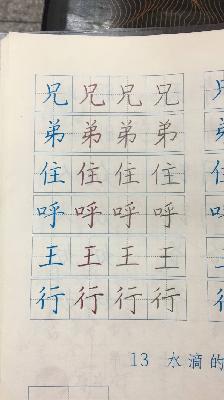 兄兄兄兄
弟弟弟弟
住住住住
呼呼呼呼
王王王王
行行行行
13 水滴的